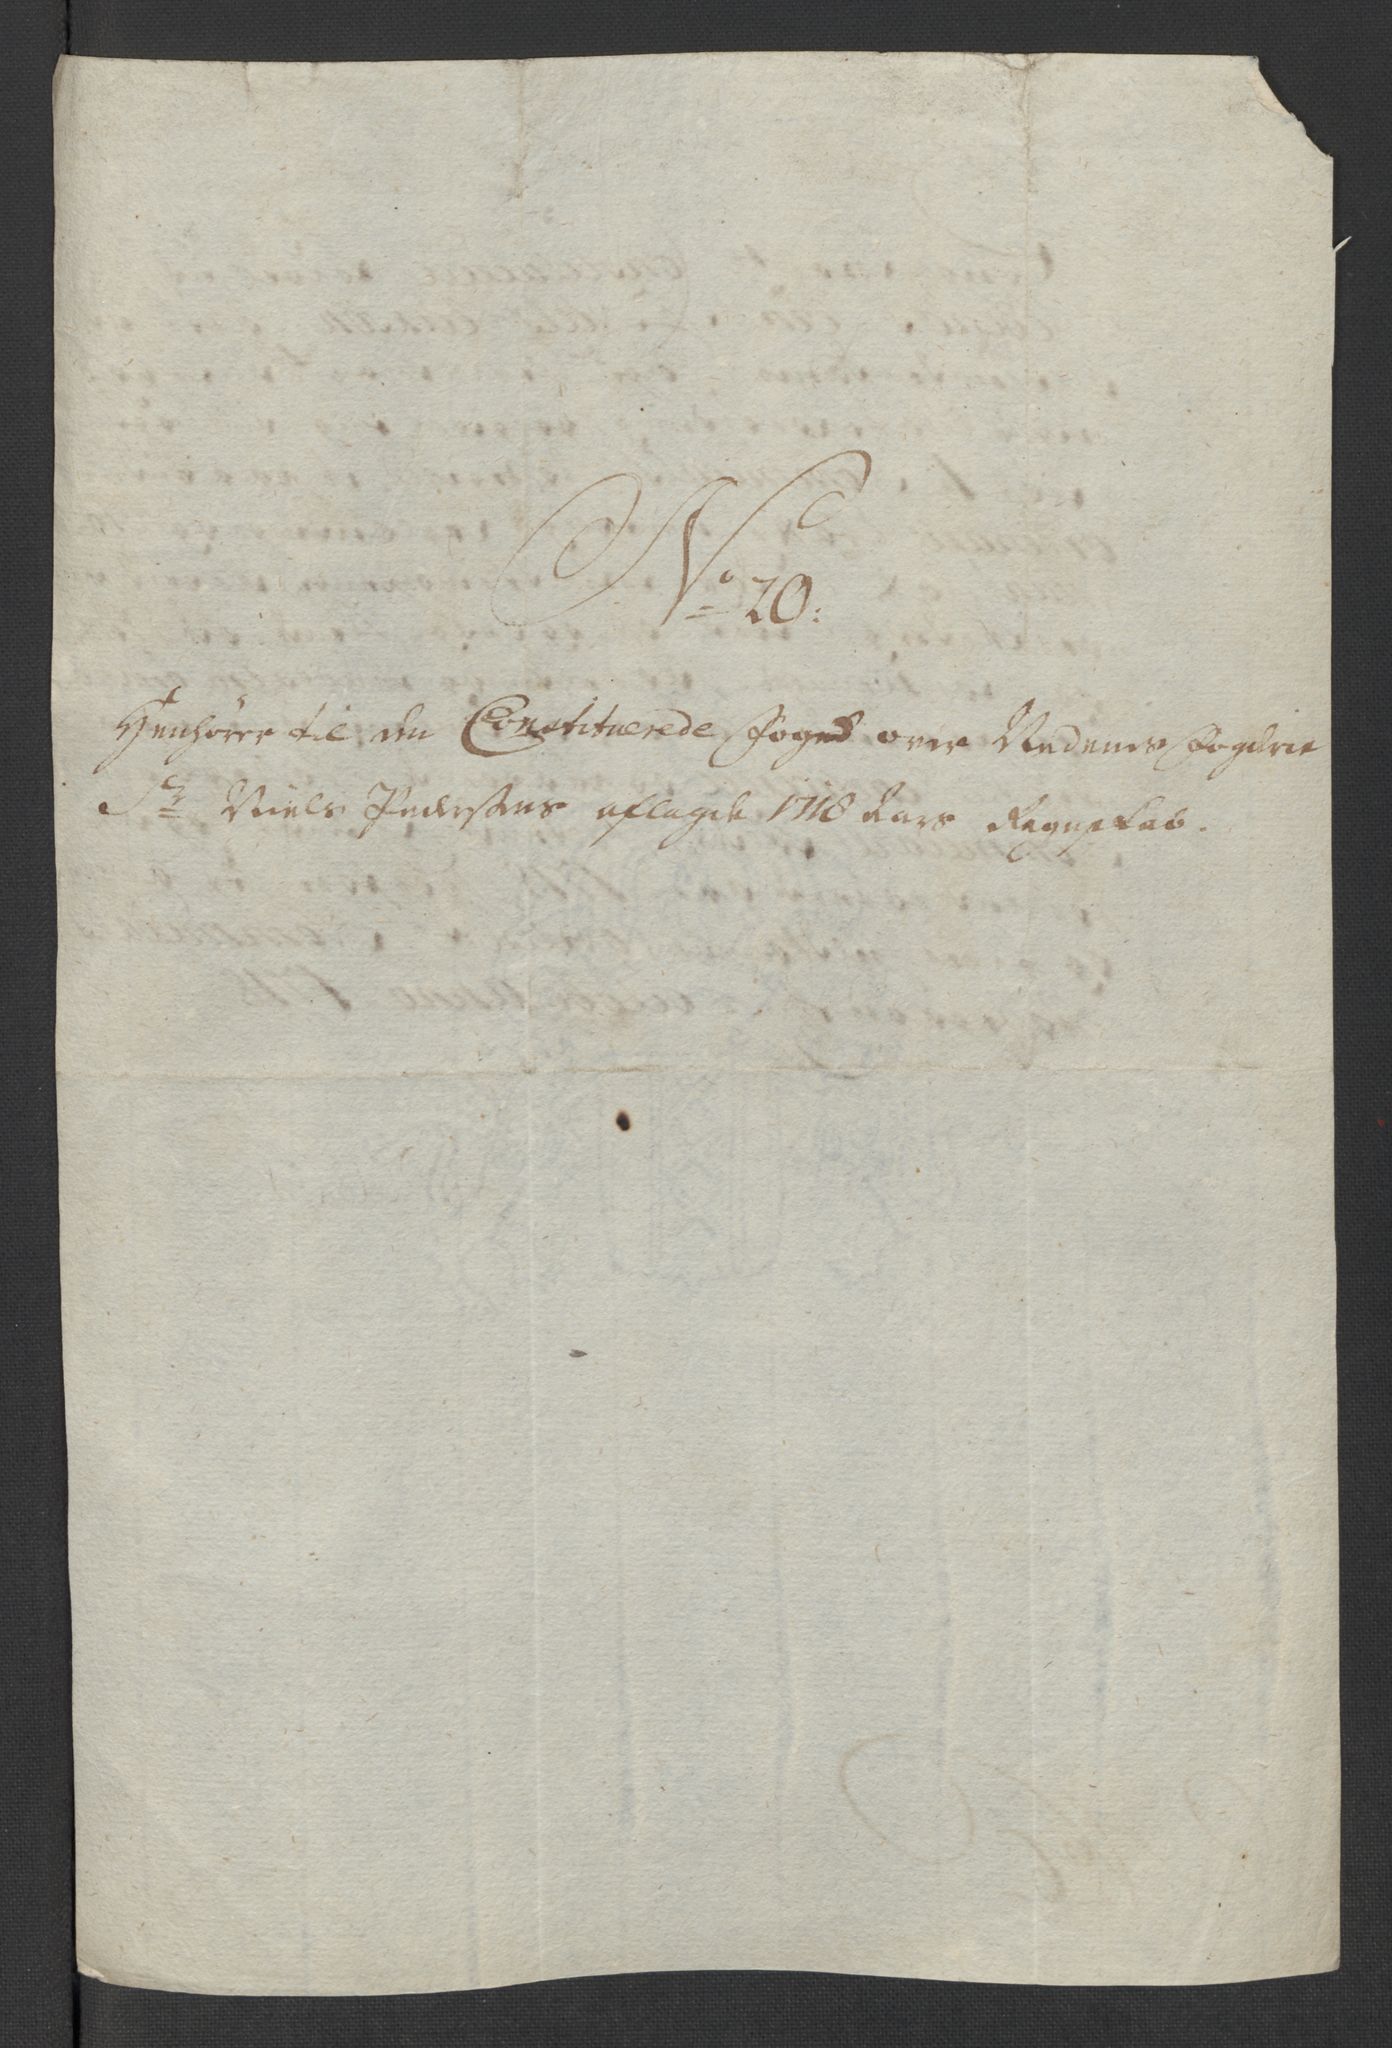 No 20:
Henhörer til den Constituerede Foged over Nedenes Fogderie
Sr Niels Pedersens aflagde 1718 Aars Regnskab.